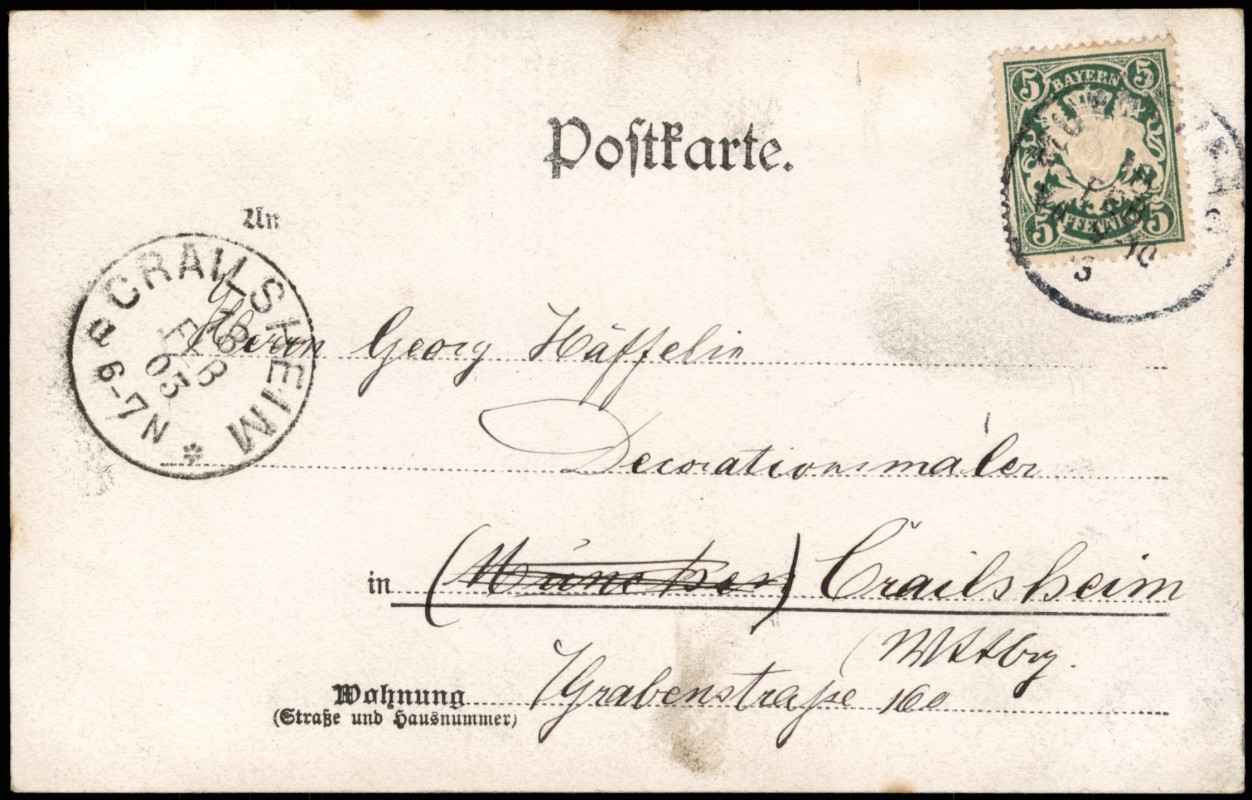 Postkarte.
5 BAYERN 5
5 PFENNIG 5
An
CRAILSHEIM
FEB
03
6-7N
Herrn Georg Häffelin
Decorationsmaler
in (München) Crailsheim
Wttbg.
Wohnung Grabenstraße 160
(Straße und Hausnummer)